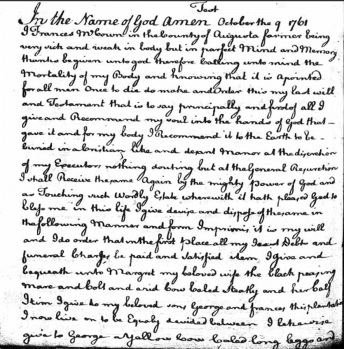 Test
In the Name of God Amen October the 9 1761
I Frances McCown in the County of Augusta farmer being
very sick and weak in body but in parfit Mind and Memory
thanks be given unto god therefore Calling unto mind the
Mortality of my Body and Knowing that it is apointed
for all men Once to die do make and Order this my last will
and Testament that is to say principally and first of all I
give and Recommend my soul into the hands of God that
gave it and for my body I Recommend it to the Earth to be
buried in a Christian like and desent Manor at the discretion
of my Executors nothing douting but at the General Resurection
I shall Receive the same Again by the mighty Power of God and
as Touching such Wordly Estate wherewith it hath pleased God to
bless me in this life I give devise and dispose of the same in
the following Manner and form Imprimis it is my will
and I do order that in the first place all my Just Debts and
funeral Charges be paid and satisfied item I give and
bequeath unto Margret my beloved wife the black pacing
mare and Colt and and Cow Called and her Calf
Item I give to my beloved sons George and frances this plantation
I now live on to be Equely devided between I likewise
give to George a Yallow Cow Caled long leggs and